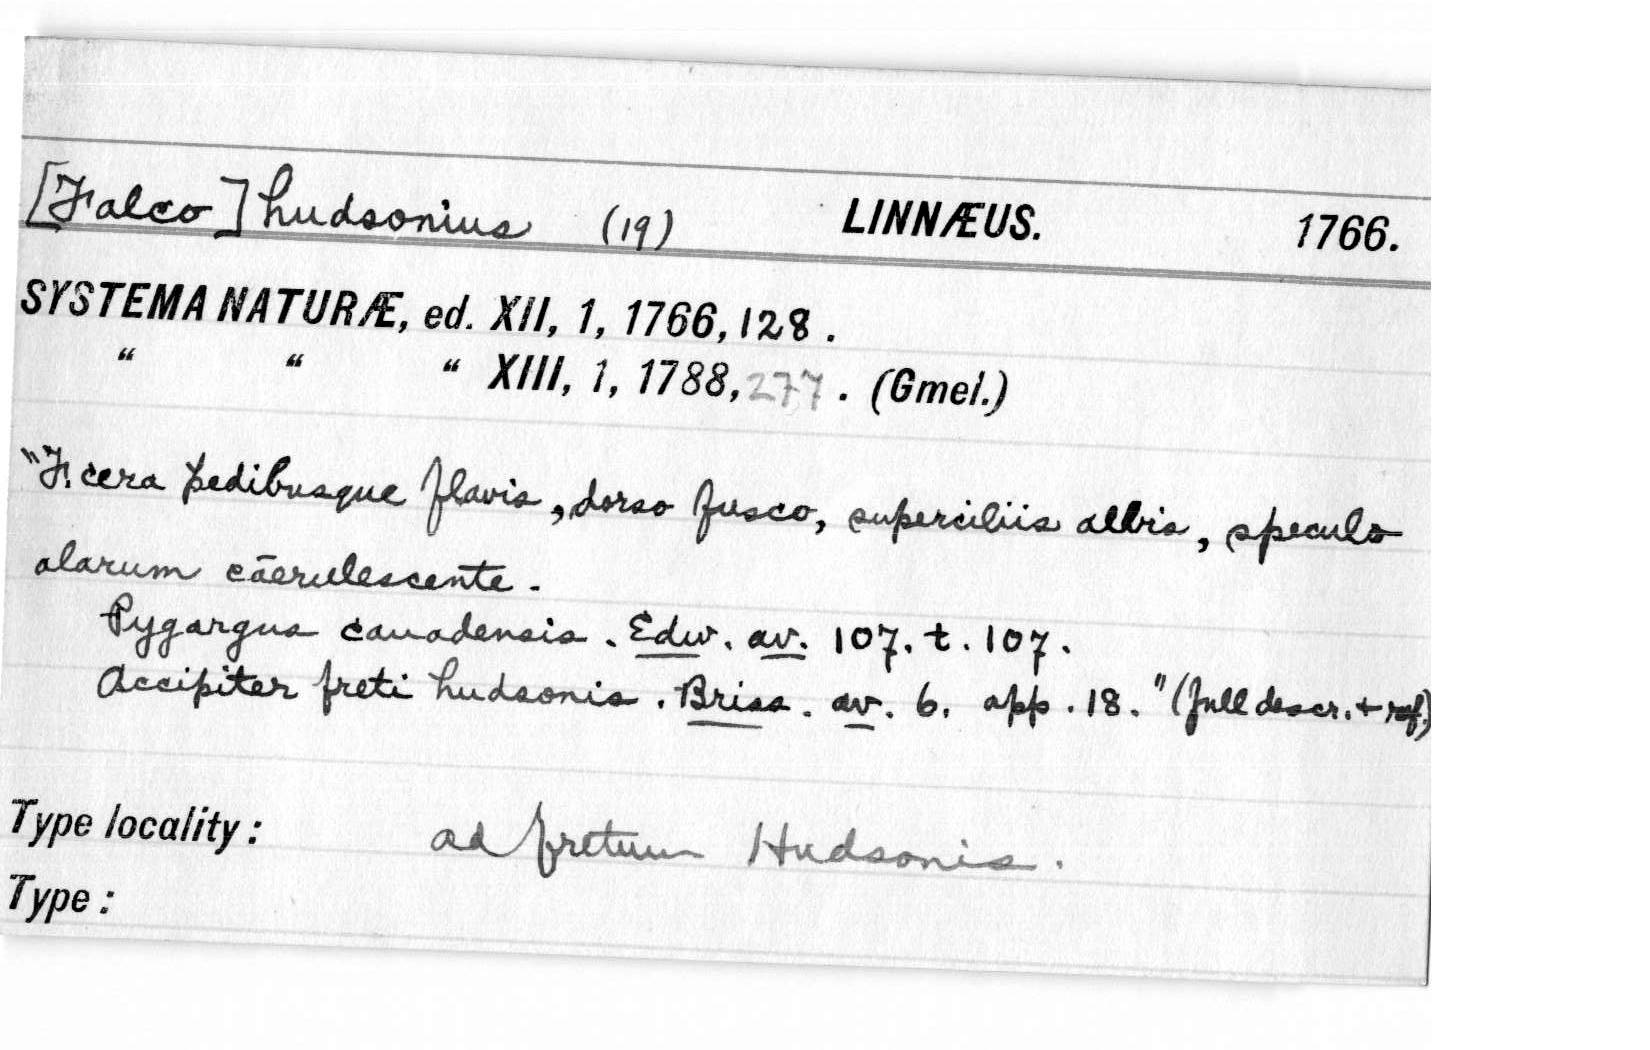 [Falco] hudsonius (19) LINNÆUS. 1766.
SYSTEMA NATURÆ, ed. XII, 1, 1766, 128.
“ “ “ XIII, 1, 1788, 277. (Gmel.)
"F. cera pedibusque flavis, dorso fusco, superciliis albis, speculo
alarum cāerulescente.
Pygargus canadensis. Edw. av. 107. t. 107.
Accipiter freti hudsonis. Briss. av. 6. app. 18." (full descr. + ref.)
Type locality: ad fretum Hudsonis.
Type: